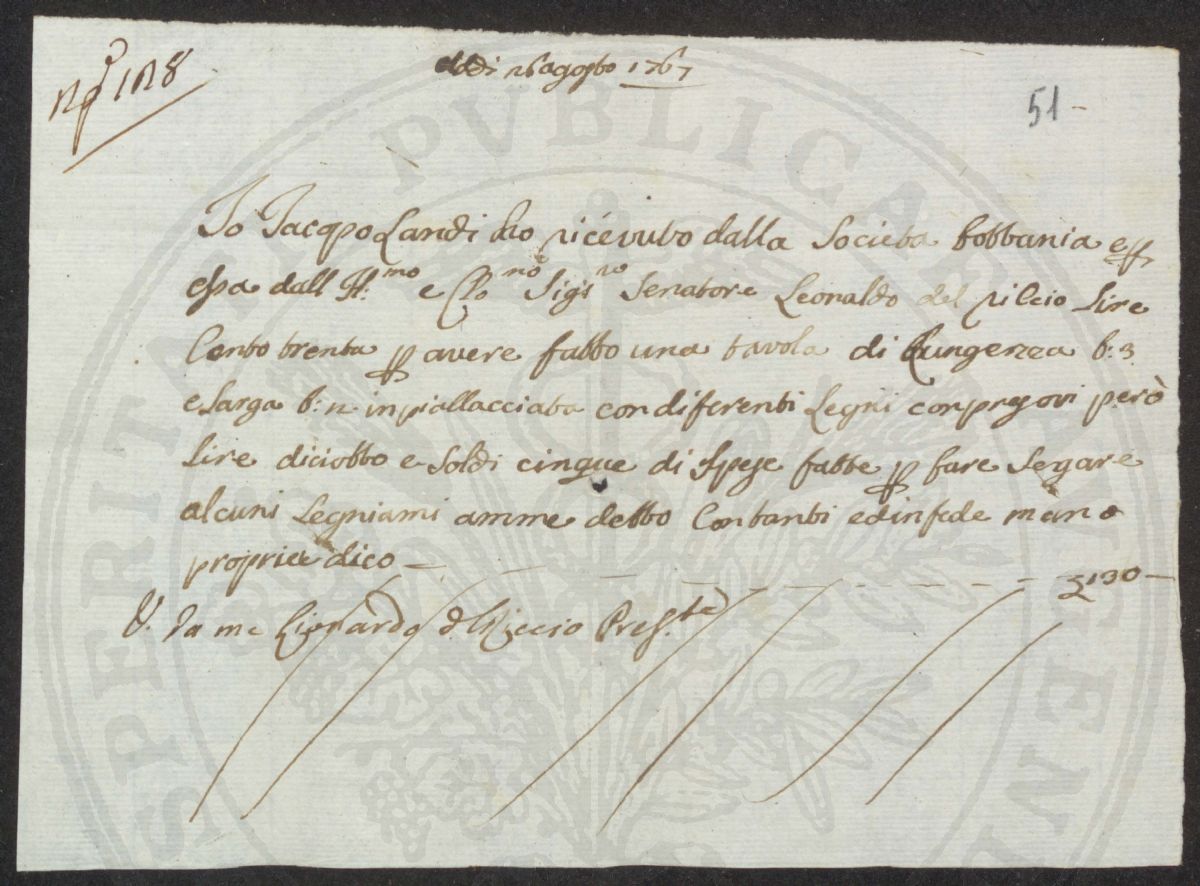 No 118
Addi 26 agosto 1767
51
Io Jacopo Landi ho ricevuto dalla Società bottania e p
essa dall Ill.mo e Cl.mo Sig.re Senatore Leonaldo del riccio lire
Cento trenta p avere fatto una tavola di lungenzza b: 3
e larga b: 2 inpiallacciata con diferenti Legni conpresovi però
lire diciotto e soldi cinque di spese fatte p fare segare
alcuni Legniami amme detto Contanti ed in fede mano
propria dico — £ 130 —
V. Da me Lionardo d. Riccio Pres.te
PROSPERITATI PVBLICAE AVGENDAE